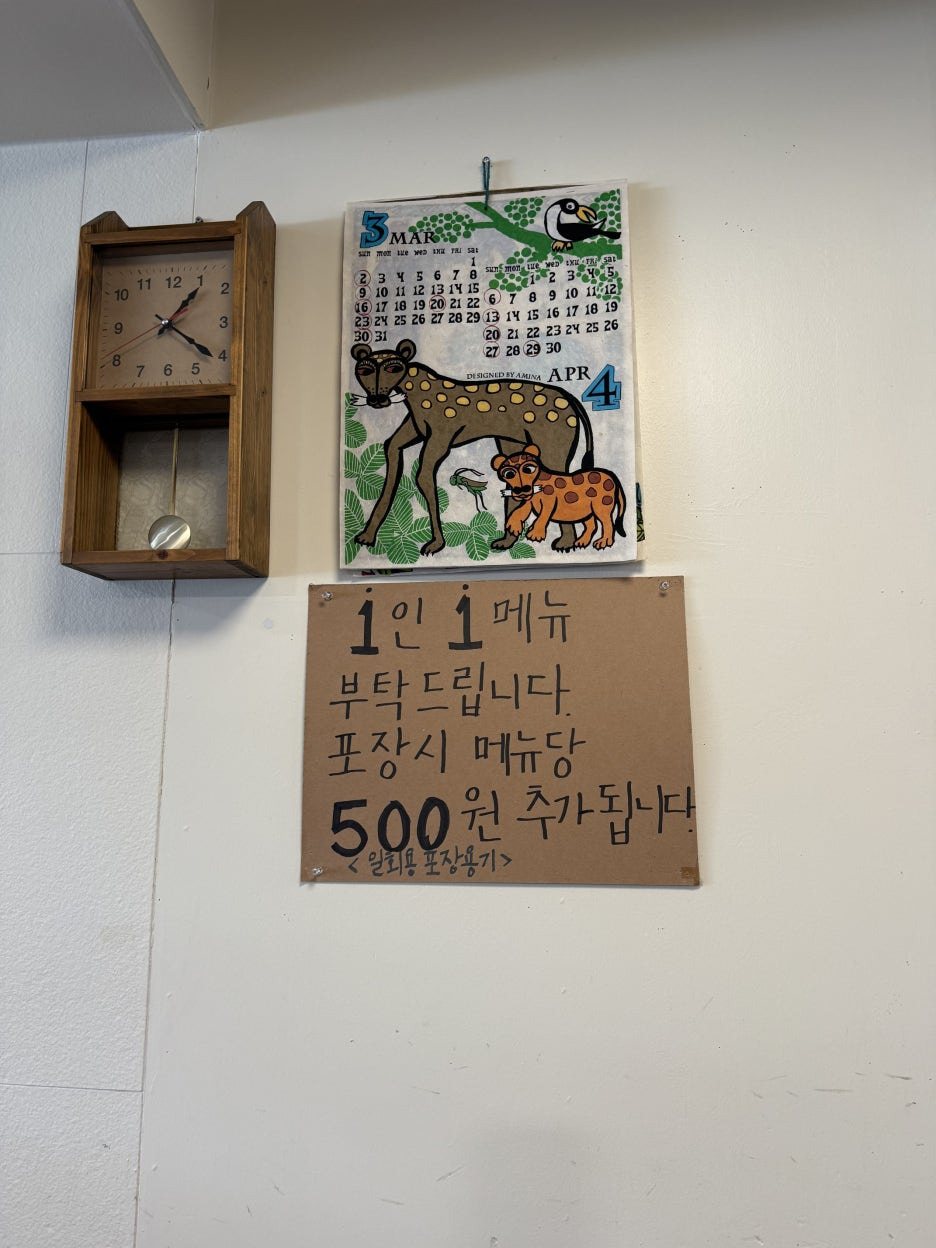 11 12 1
10 2
9 3
8 4
7 6 5
3 MAR
SUN MON TUE WED THU FRI SAT
1
2 3 4 5 6 7 8
9 10 11 12 13 14 15
16 17 18 19 20 21 22
23 24 25 26 27 28 29
30 31
SUN MON TUE WED THU FRI SAT
1 2 3 4 5
6 7 8 9 10 11 12
13 14 15 16 17 18 19
20 21 22 23 24 25 26
27 28 29 30
DESIGNED BY AMINA APR 4
1인 1메뉴
부탁드립니다.
포장시 메뉴당
500원 추가됩니다.
<일회용 포장용기>